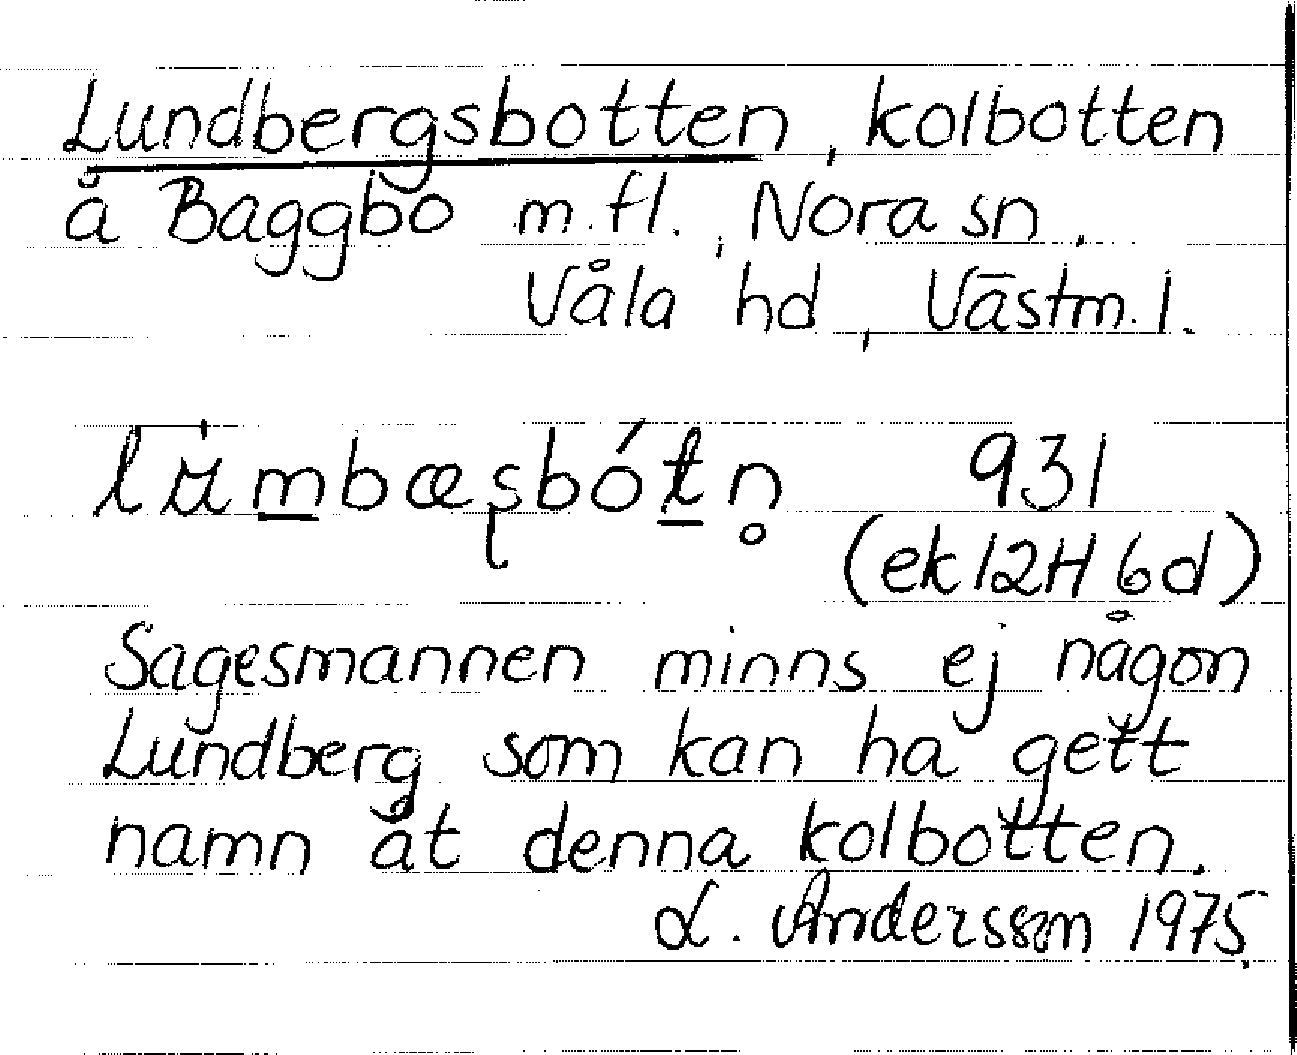 Lundbergsbotten, kolbotten
å Baggbo m.fl., Nora sn,
Våla hd, Västm. l.
931
(ek 12H 6d)
Sagesmannen minns ej någon
Lundberg som kan ha gett
namn åt denna kolbotten.
L. Andersson 1975.